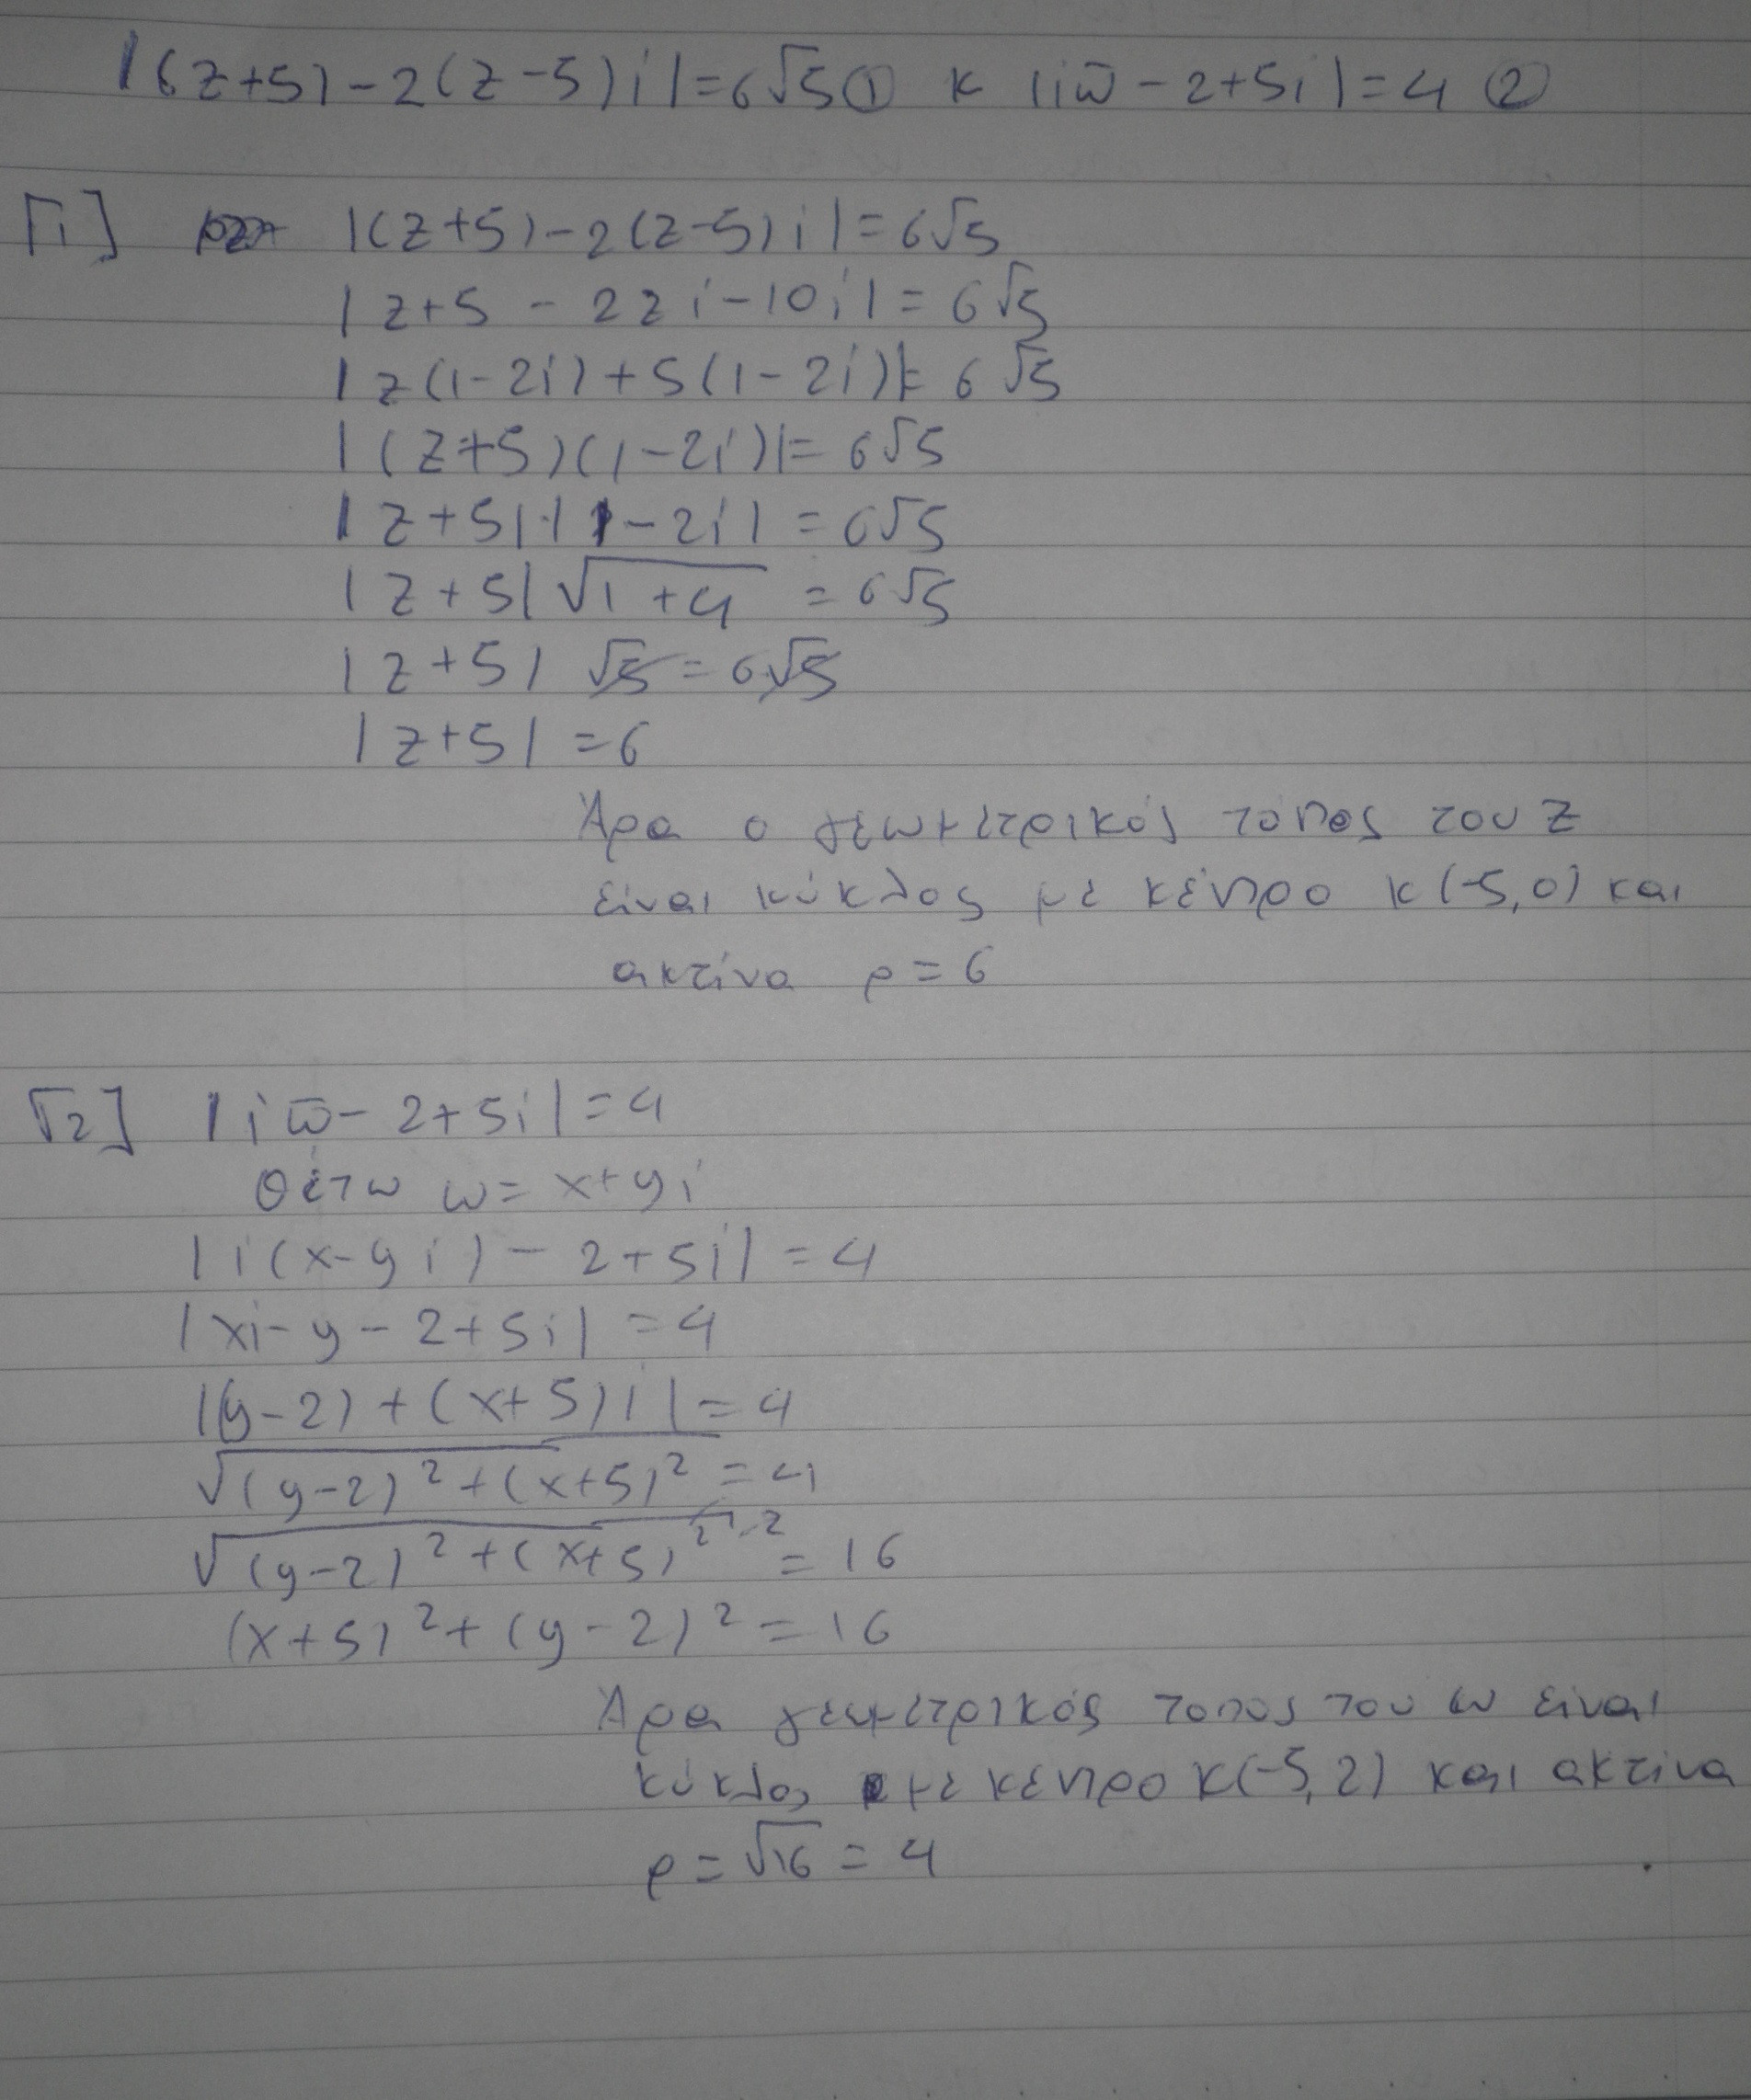 |(z+5)-2(z-5)i|=6√5 ① κ |iw̄-2+5i|=4 ②
Γ1] |(z+5)-2(z-5)i|=6√5
|z+5-2zi-10i|=6√5
|z(1-2i)+5(1-2i)|=6√5
|(z+5)(1-2i)|=6√5
|z+5|·|1-2i|=6√5
|z+5|√1+4=6√5
|z+5|√5=6√5
|z+5|=6
Άρα ο γεωμετρικός τόπος του z
είναι κύκλος με κέντρο κ(-5,0) και
ακτίνα ρ=6
Γ2] |iw̄-2+5i|=4
Θέτω w=x+yi
|i(x-yi)-2+5i|=4
|xi-y-2+5i|=4
|(y-2)+(x+5)i|=4
√(y-2)²+(x+5)²=4
√(y-2)²+(x+5)²²=16
(x+5)²+(y-2)²=16
Άρα γεωμετρικός τοπος του w είναι
κύκλος με κέντρο κ(-5,2) και ακτίνα
ρ=√16=4